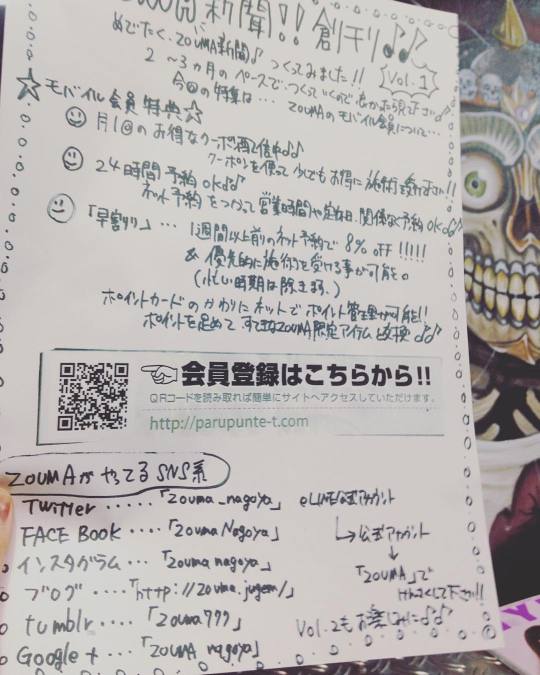 ZOUMA新聞!! 創刊♪♪
めでたく、ZOUMA新聞♪ つくってみました!!
Vol.1
2〜3ヵ月のペースでつくっていくので良かったら見て下さい♪
今回の特集は… ZOUMAのモバイル会員について…
☆モバイル会員特典☆
月1回のお得なクーポン配信中♪♪
クーポンを使って少しでもお得に施術を受けて下さい!!
24時間予約OK♪♪
ネット予約をつかって営業時間や定休日、関係なく予約OK♪♪
「早割り」… 1週間以上前のネット予約で 8% OFF !!!!!
& 優先的に施術を受ける事が可能。
(忙しい時期は除きます。)
ポイントカードのかわりにネットでポイント管理が可能!!
ポイントを貯めて すてきなZOUMA限定アイテムと交換♪♪
会員登録はこちらから!!
QRコードを読み取れば簡単にサイトへアクセスしていただけます。
http://parupunte-t.com
ZOUMAがやってるSNS系
Twitter ・・・・・「zouma_nagoya」
FACE Book ・・・・「zouma Nagoya」
インスタグラム ・・・「zouma nagoya」
ブログ ・・・・「http://zouma.jugem/」
tumblr ・・・・「zouma777」
Google + ・・・「ZOUMA nagoya」
@LINE公式アカウント
↳公式アカウント
↓
「ZOUMA」で
けんさくして下さい!!
Vol.2もお楽しみに♪♪